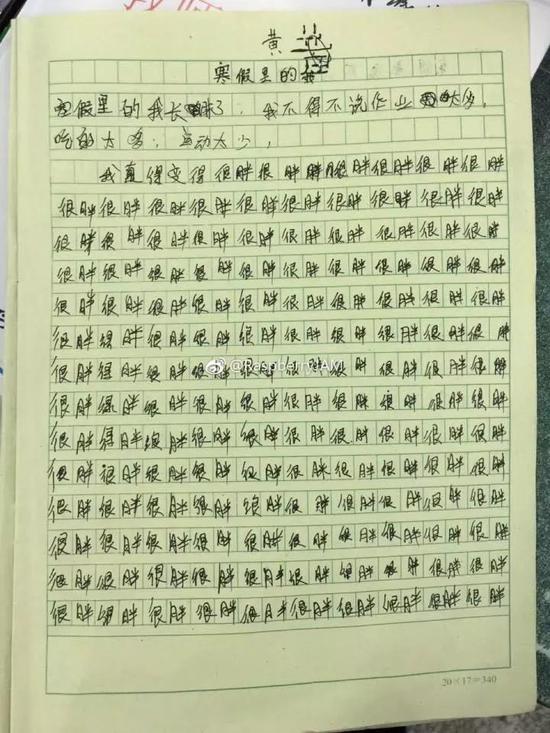 黄
寒假里的我
寒假里的我长胖了,我不得不说作业太少,
吃的太多,运动太少,
我真得变得很胖很胖很胖很胖很胖很胖很胖
很胖很胖很胖很胖很胖很胖很胖很胖很胖很胖
很胖很胖很胖很胖很胖很胖很胖很胖很胖很胖
很胖很胖很胖很胖很胖很胖很胖很胖很胖很胖
很胖很胖很胖很胖很胖很胖很胖很胖很胖很胖
很胖很胖很胖很胖很胖很胖很胖很胖很胖很胖
很胖很胖很胖很胖很胖很胖很胖很胖很胖很胖
@RaspberryJAM
很胖很胖很胖很胖很胖很胖很胖很胖很胖很胖
很胖很胖很胖很胖很胖很胖很胖很胖很胖很胖
很胖很胖很胖很胖很胖很胖很胖很胖很胖很胖
很胖很胖很胖很胖很胖很胖很胖很胖很胖很胖
很胖很胖很胖很胖很胖很胖很胖很胖很胖很胖
很胖很胖很胖很胖很胖很胖很胖很胖很胖很胖
很胖很胖很胖很胖很胖很胖很胖很胖很胖很胖
20×17=340